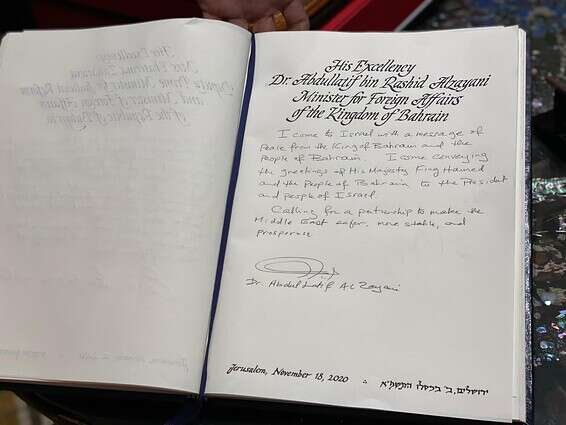 His Excellency
Dr. Abdullatif bin Rashid Alzayani
Minister for Foreign Affairs
of the Kingdom of Bahrain
I come to Israel with a message of
Peace from the King of Bahrain and the
People of Bahrain. I come conveying
the greetings of His Majesty King Hamed
and the People of Bahrain to the President
and people of Israel
Calling for a partnership to make the
Middle East safer, more stable, and
prosperous
Dr. Abdullatif AL Zayani
Jerusalem, November 18, 2020
ירושלים, ב׳ בכסלו התשפ״א